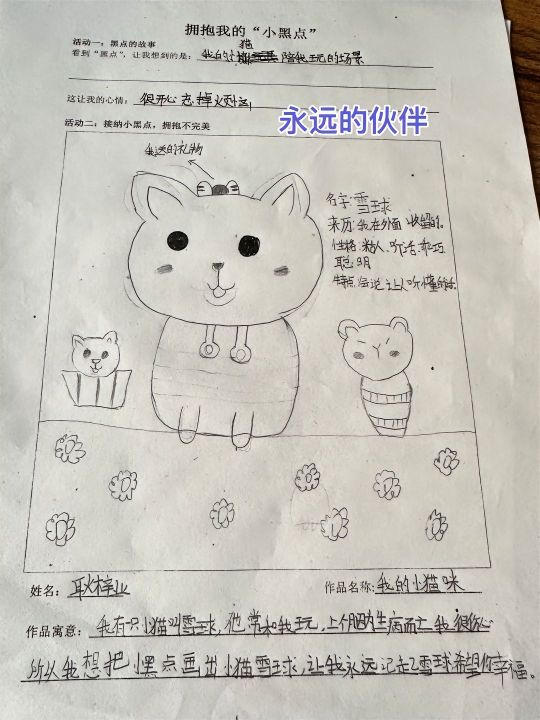 拥抱我的“小黑点”
活动一：黑点的故事
看到“黑点”，让我想到的是：我的小猫陪我玩的场景
这让我的心情：很开心 忘掉火烦恼
永远的伙伴
活动二：接纳小黑点，拥抱不完美
我送的礼物
名字：雪球
来历：我在外面收留的。
性格：粘人、听话、乖巧
聪明
特点：会说让人听懂的话
姓名：耿梓业
作品名称：我的小猫咪
作品寓意：我有一只小猫叫雪球，他常和我玩，上个月因生病而亡我很伤心
所以我想把小黑点画出小猫雪球，让我永远记走乙雪球希望你幸福。